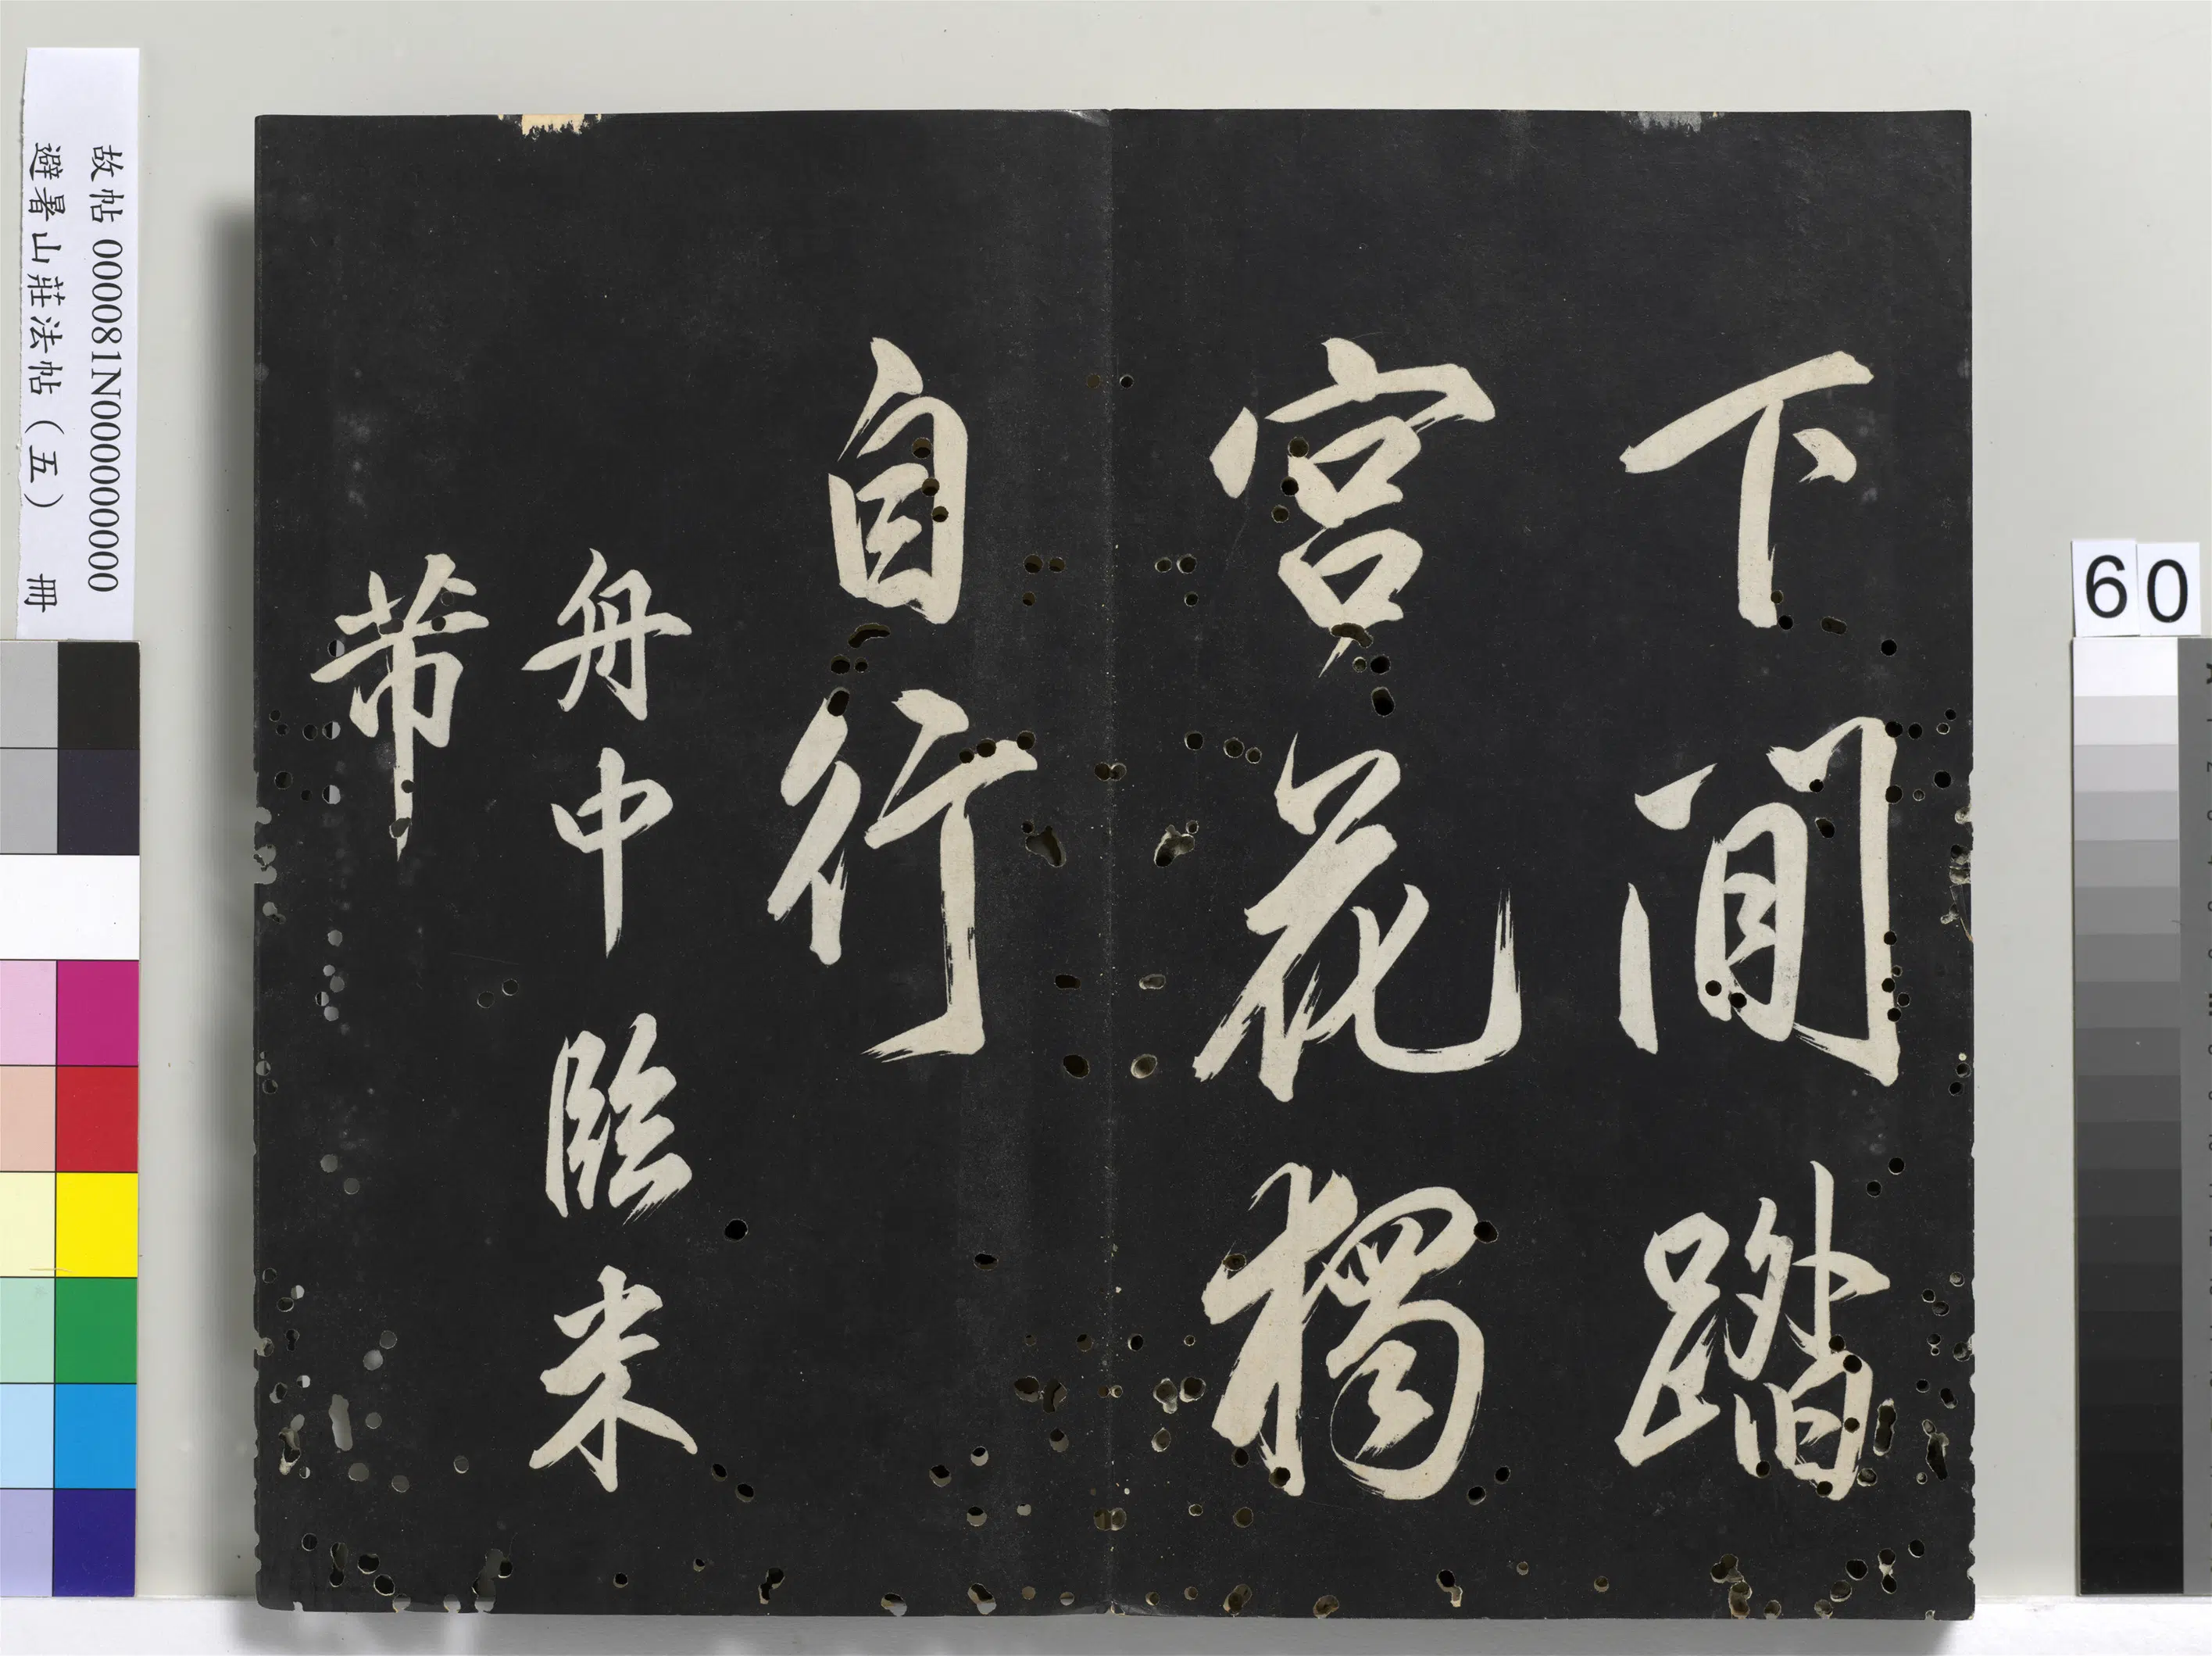 下閒踏
宮花獨
自行
舟中臨米
芾
故帖 000081N000000000
避暑山莊法帖（五） 冊
60